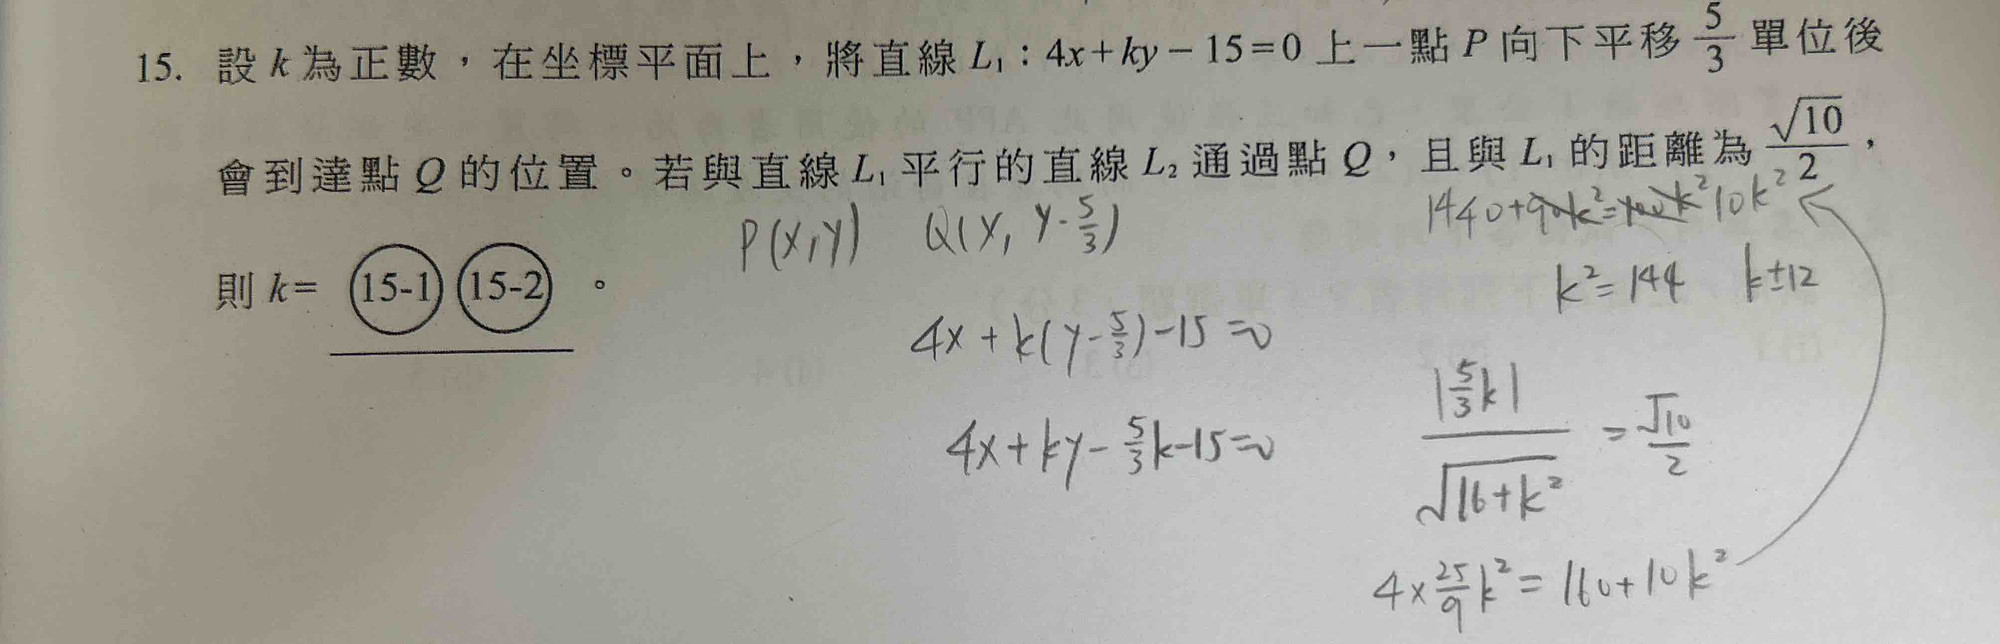 15. 設 k 為正數，在坐標平面上，將直線 L₁：4x+ky−15=0 上一點 P 向下平移 5/3 單位後
會到達點 Q 的位置。若與直線 L₁ 平行的直線 L₂ 通過點 Q，且與 L₁ 的距離為 √10/2，
則 k= (15-1) (15-2) 。
P(x,y) Q(x, y-5/3)
4x+k(y-5/3)-15=0
4x+ky-5/3k-15=0
|5/3k|/√16+k² = √10/2
4×25/9k²=160+10k²
1440+90k²=100k² 10k²
k²=144 k±12